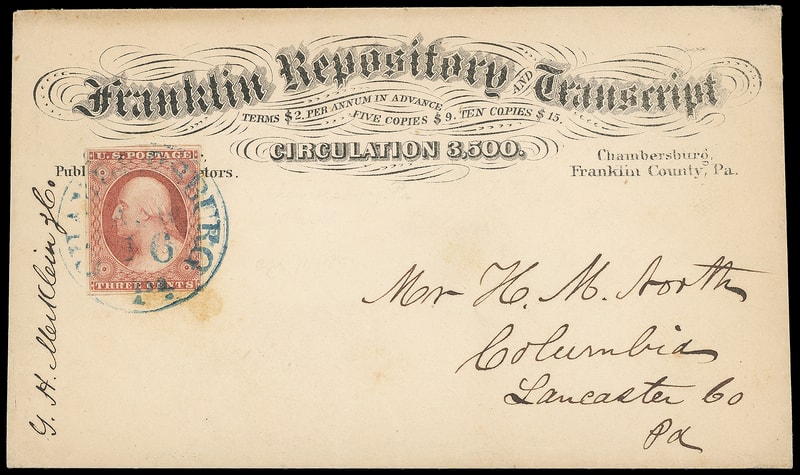 Franklin Repository AND Transcript
TERMS $2. PER ANNUM IN ADVANCE
FIVE COPIES $9. TEN COPIES $15.
CIRCULATION 3,500.
Chambersburg,
Franklin County, Pa.
U.S. POSTAGE
THREE CENTS
CHAMBERSBURG
16
PA
Mr H. M. North
Columbia
Lancaster Co
Pa